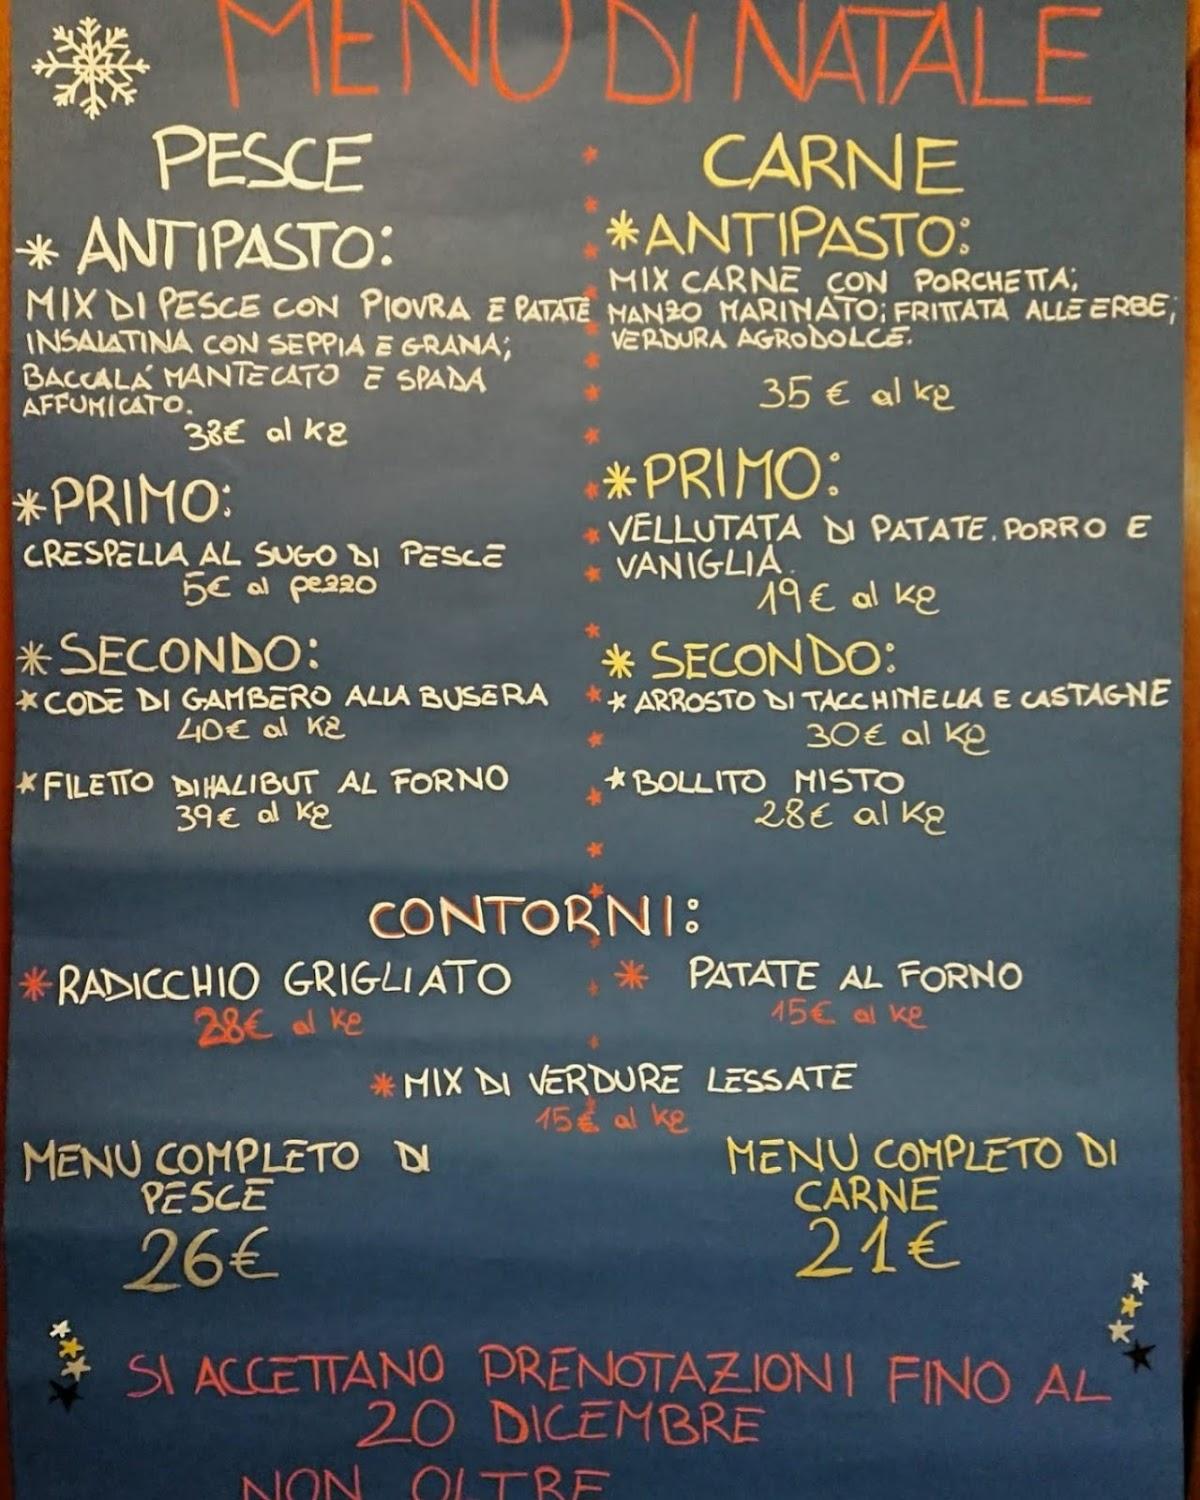 MENÙ DI NATALE
PESCE
* ANTIPASTO:
MIX DI PESCE CON PIOVRA E PATATE
INSALATINA CON SEPPIA E GRANA;
BACCALA' MANTECATO E SPADA
AFFUMICATO.
38€ al kg
*PRIMO:
CRESPELLA AL SUGO DI PESCE
5€ al pezzo
*SECONDO:
*CODE DI GAMBERO ALLA BUSERA
40€ al kg
*FILETTO DI HALIBUT AL FORNO
39€ al kg
CARNE
*ANTIPASTO:
MIX CARNE CON PORCHETTA;
MANZO MARINATO; FRITTATA ALLE ERBE;
VERDURA AGRODOLCE.
35 € al kg
*PRIMO:
VELLUTATA DI PATATE. PORRO E
VANIGLIA.
19€ al kg
* SECONDO:
* ARROSTO DI TACCHINELLA E CASTAGNE
30€ al kg
*BOLLITO MISTO
28€ al kg
CONTORNI:
*RADICCHIO GRIGLIATO
28€ al kg
* PATATE AL FORNO
15€ al kg
*MIX DI VERDURE LESSATE
15€ al kg
MENU COMPLETO DI
PESCE
26€
MENU COMPLETO DI
CARNE
21€
SI ACCETTANO PRENOTAZIONI FINO AL
20 DICEMBRE
NON OLTRE